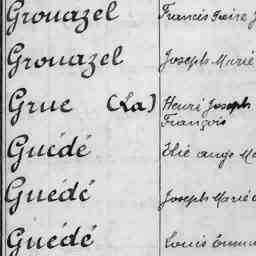 Grouazel Francis Faire
Grouazel Joseph Marie
Grue (La) Henri Joseph
François
Guédé Elie ange Ma
Guédé Joseph Marie
Guédé Louis Emm